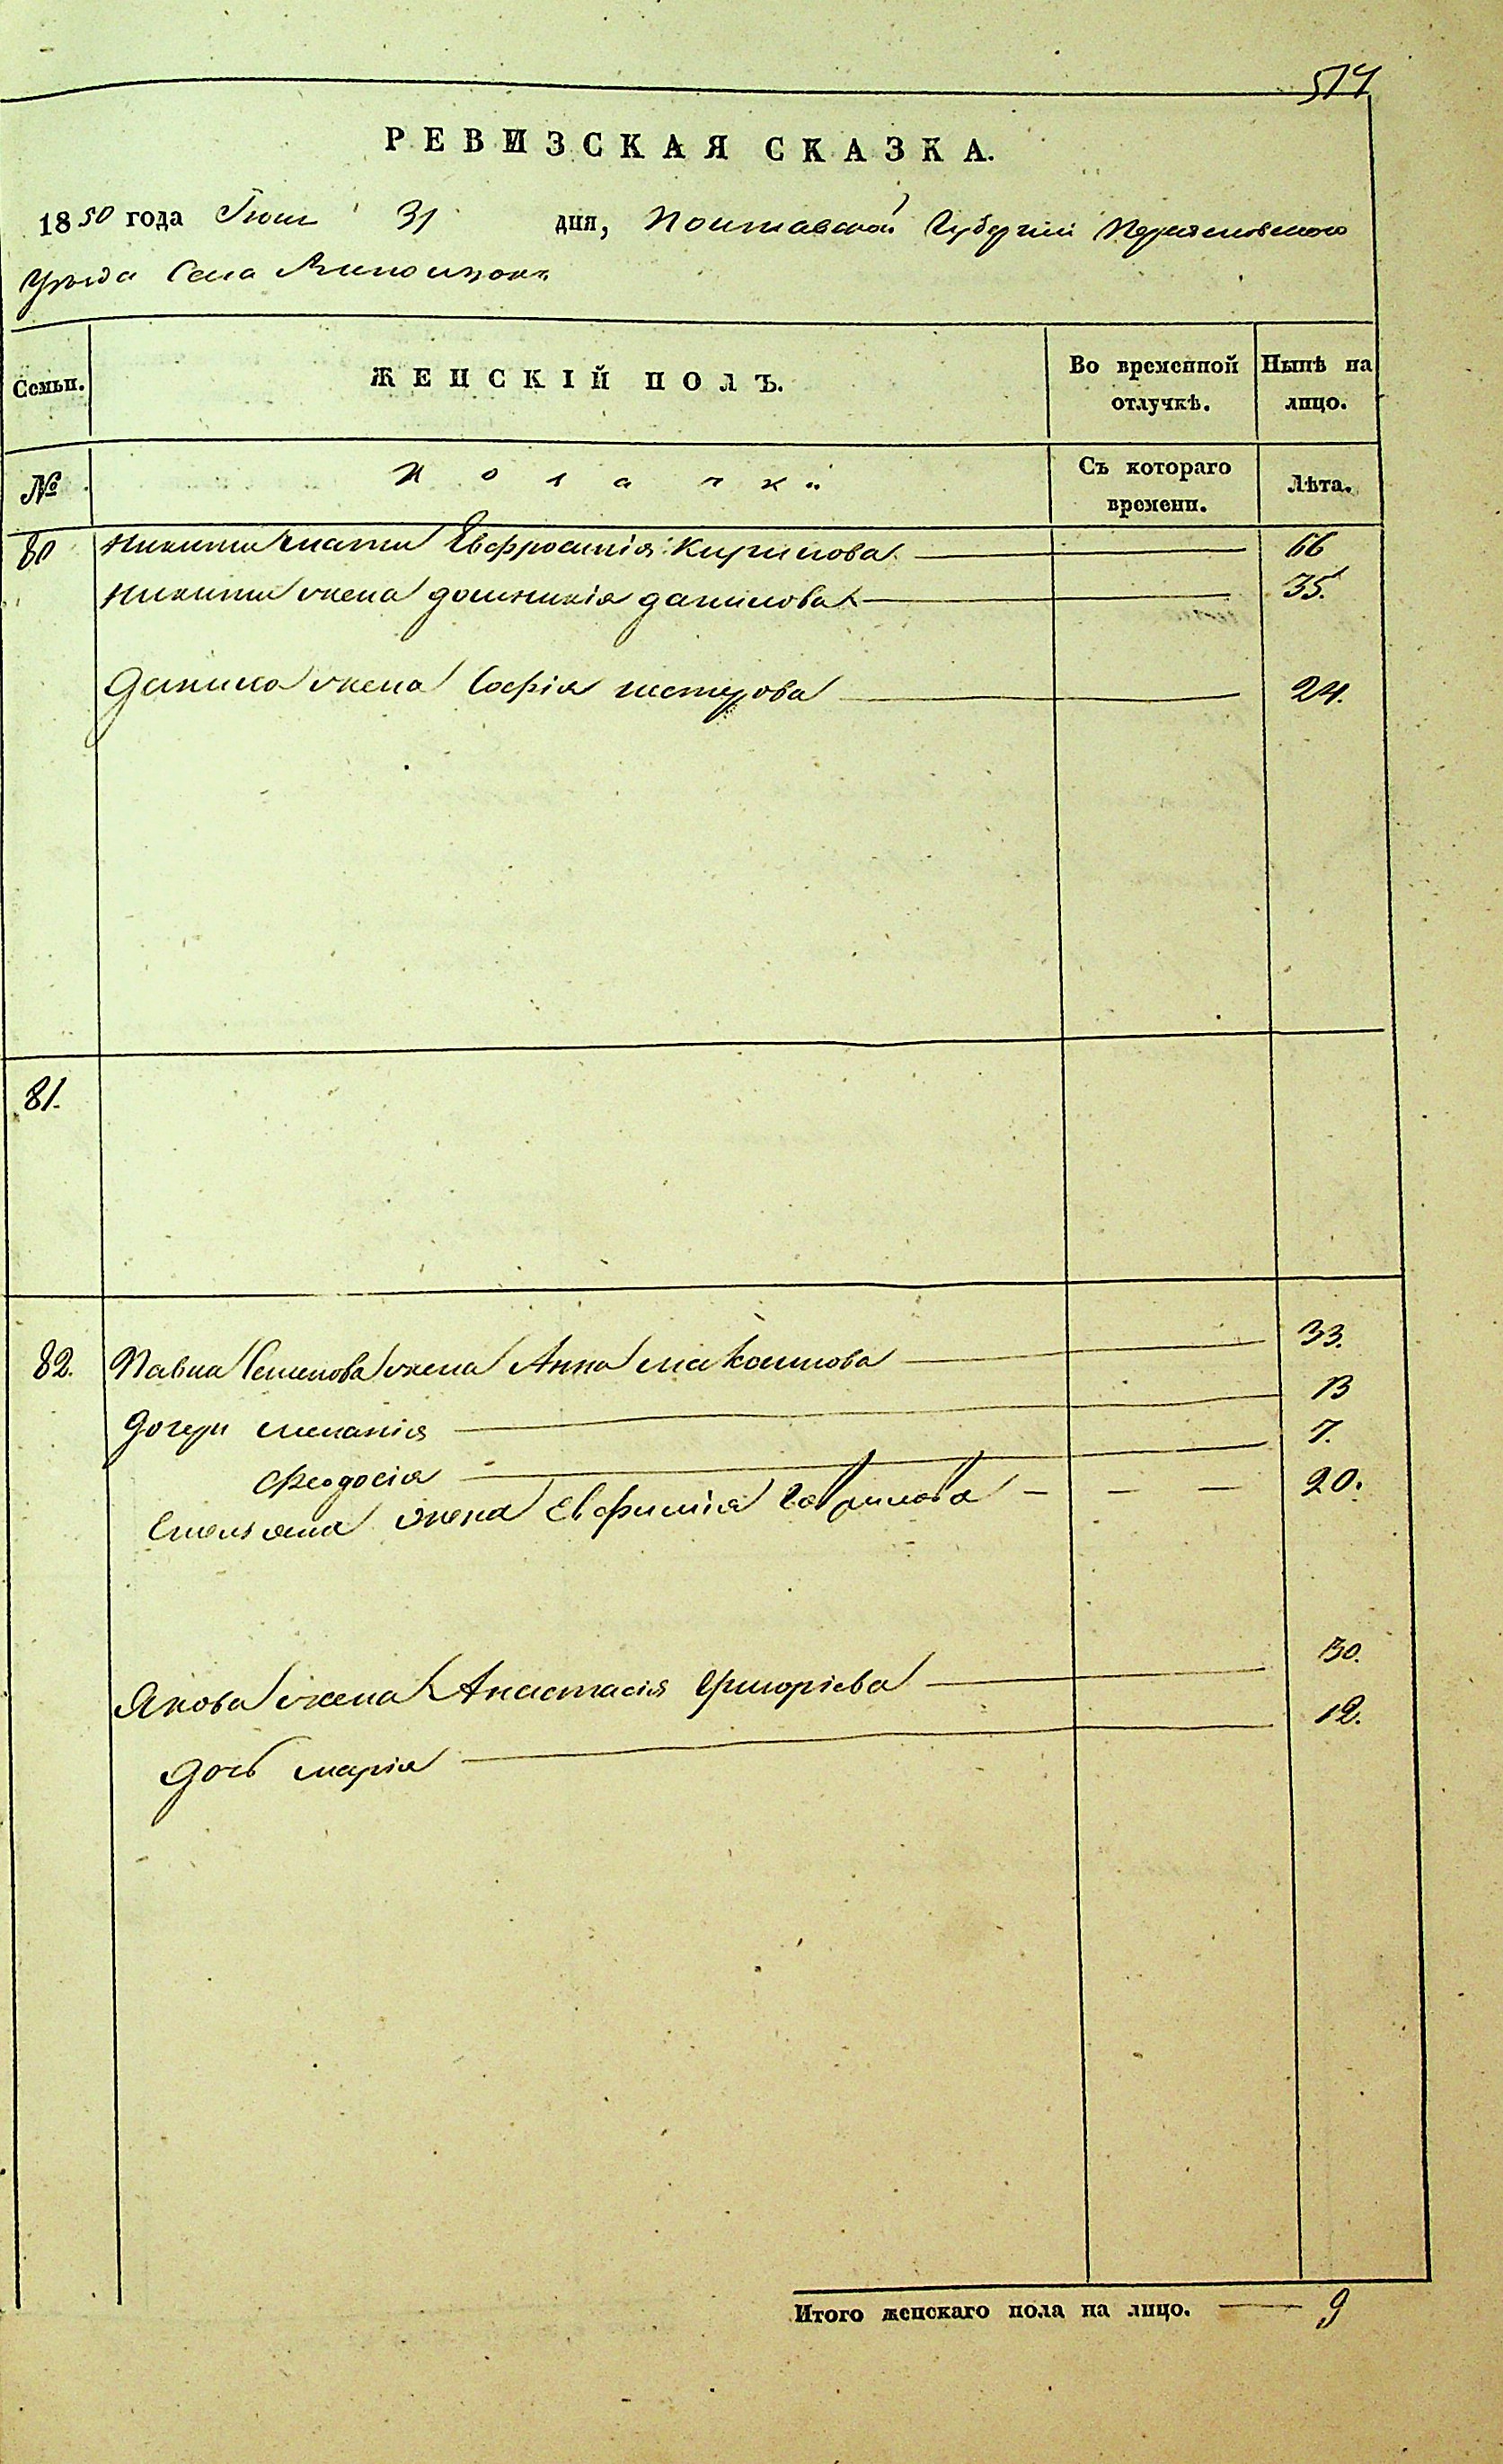 514
РЕВИЗСКАЯ СКАЗКА.
1850 года Июля 31 дня, Полтавской Губернии Переяславского
Уезда Села
Семьи. ЖЕНСКІЙ ПОЛЪ. Во временной отлучкѣ. Нынѣ на лицо.
№ Съ котораго времени. Лѣта.
80 Никиты мати Евфросинія Кирилова 66
Никиты жена домникія данилова 35.
Данила жена Софія нестерова 24.
81.
82. Павла Семенова жена Анна максимова 33.
Дочери меланія 13
феодосія 7.
Емельяна жена Евфимія Гаврилова 20.
Якова жена Анастасія Григоріева 30.
Дочь марія 12.
Итого женскаго пола на лицо. 9